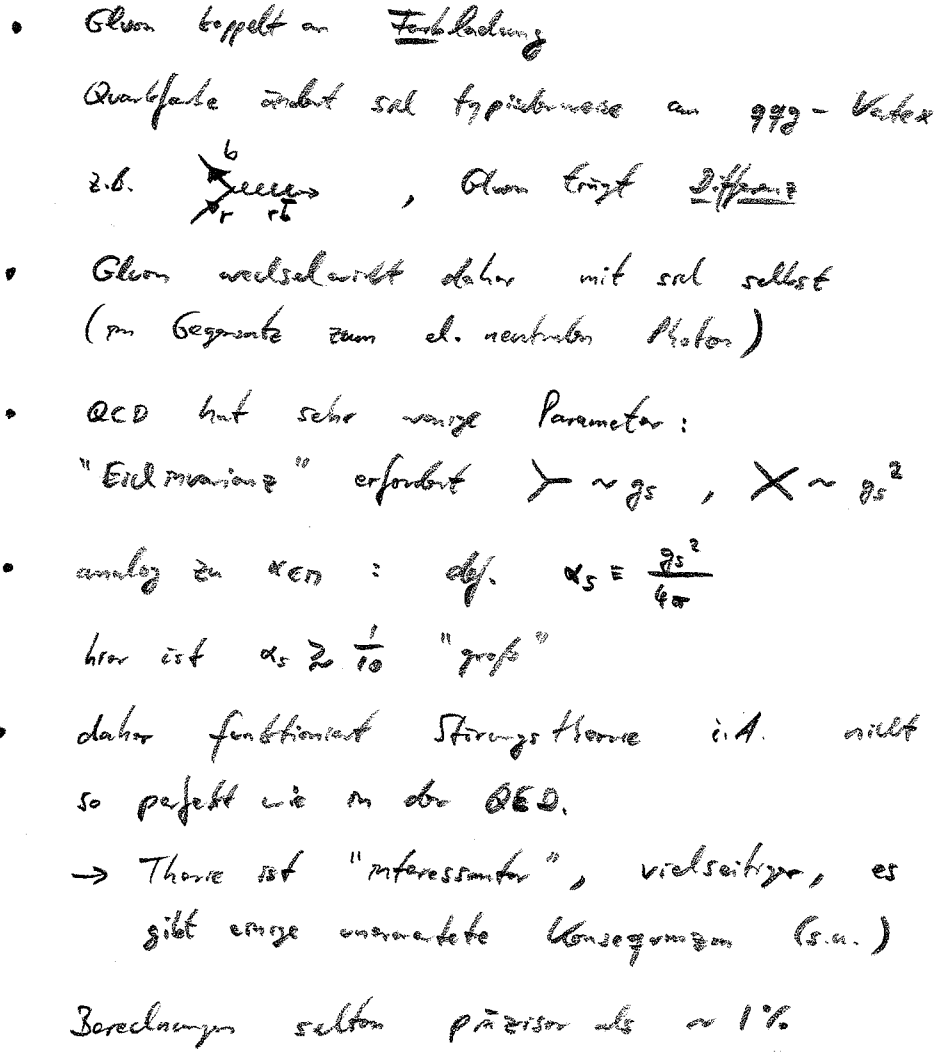 • Gluon koppelt an Farbladung
Quarkfarbe ändert sich typischerweise am qqg - Vertex
z.B. b r rb̄ , Gluon trägt Differenz
• Gluon wechselwirkt daher mit sich selbst
(im Gegensatz zum el. neutralen Photon)
• QCD hat sehr wenige Parameter:
"Eichinvarianz" erfordert ≻ ~ gₛ , ✕ ~ gₛ²
• analog zu αEM : def. αₛ ≡ gₛ² / 4π
hier ist αₛ ≳ 1/10 "groß"
• daher funktioniert Störungstheorie i.A. nicht
so perfekt wie in der QED.
→ Theorie ist "interessanter", vielseitiger, es
gibt einige unerwartete Konsequenzen (s.u.)
Berechnungen selten präziser als ~ 1%